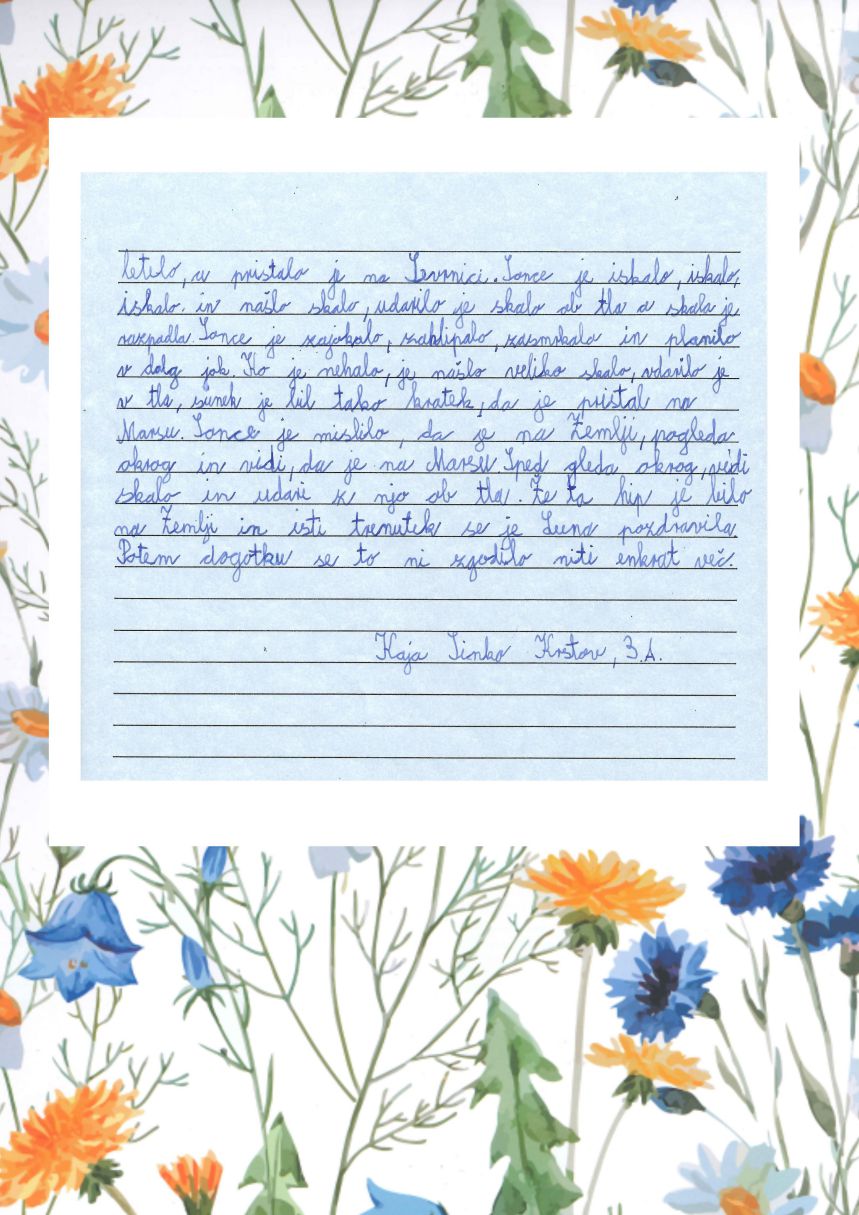 letelo, a pristalo je na Severnici. Sonce je iskalo, iskalo,
iskalo. in našlo skalo, udarilo je skalo ob tla a skala je
razpadla. Sonce je zajokalo, zahlipalo, zasmrkalo in planilo
v dolg jok. Ko je nehalo, je našlo veliko skalo, udarilo je
v tla, sunek je bil tako kratek, da je pristal na
Marsu. Sonce je mislilo, da je na Zemlji, pogleda
okrog in vidi, da je na Marsu. Sped gleda okrog, vidi
skalo in udari z njo ob tla. Že ta hip je bilo
na Zemlji in isti trenutek se je Luna pozdravila.
Potem dogotku se to ni zgodilo niti enkrat več.
Kaja Sinko Krstov, 3.A.